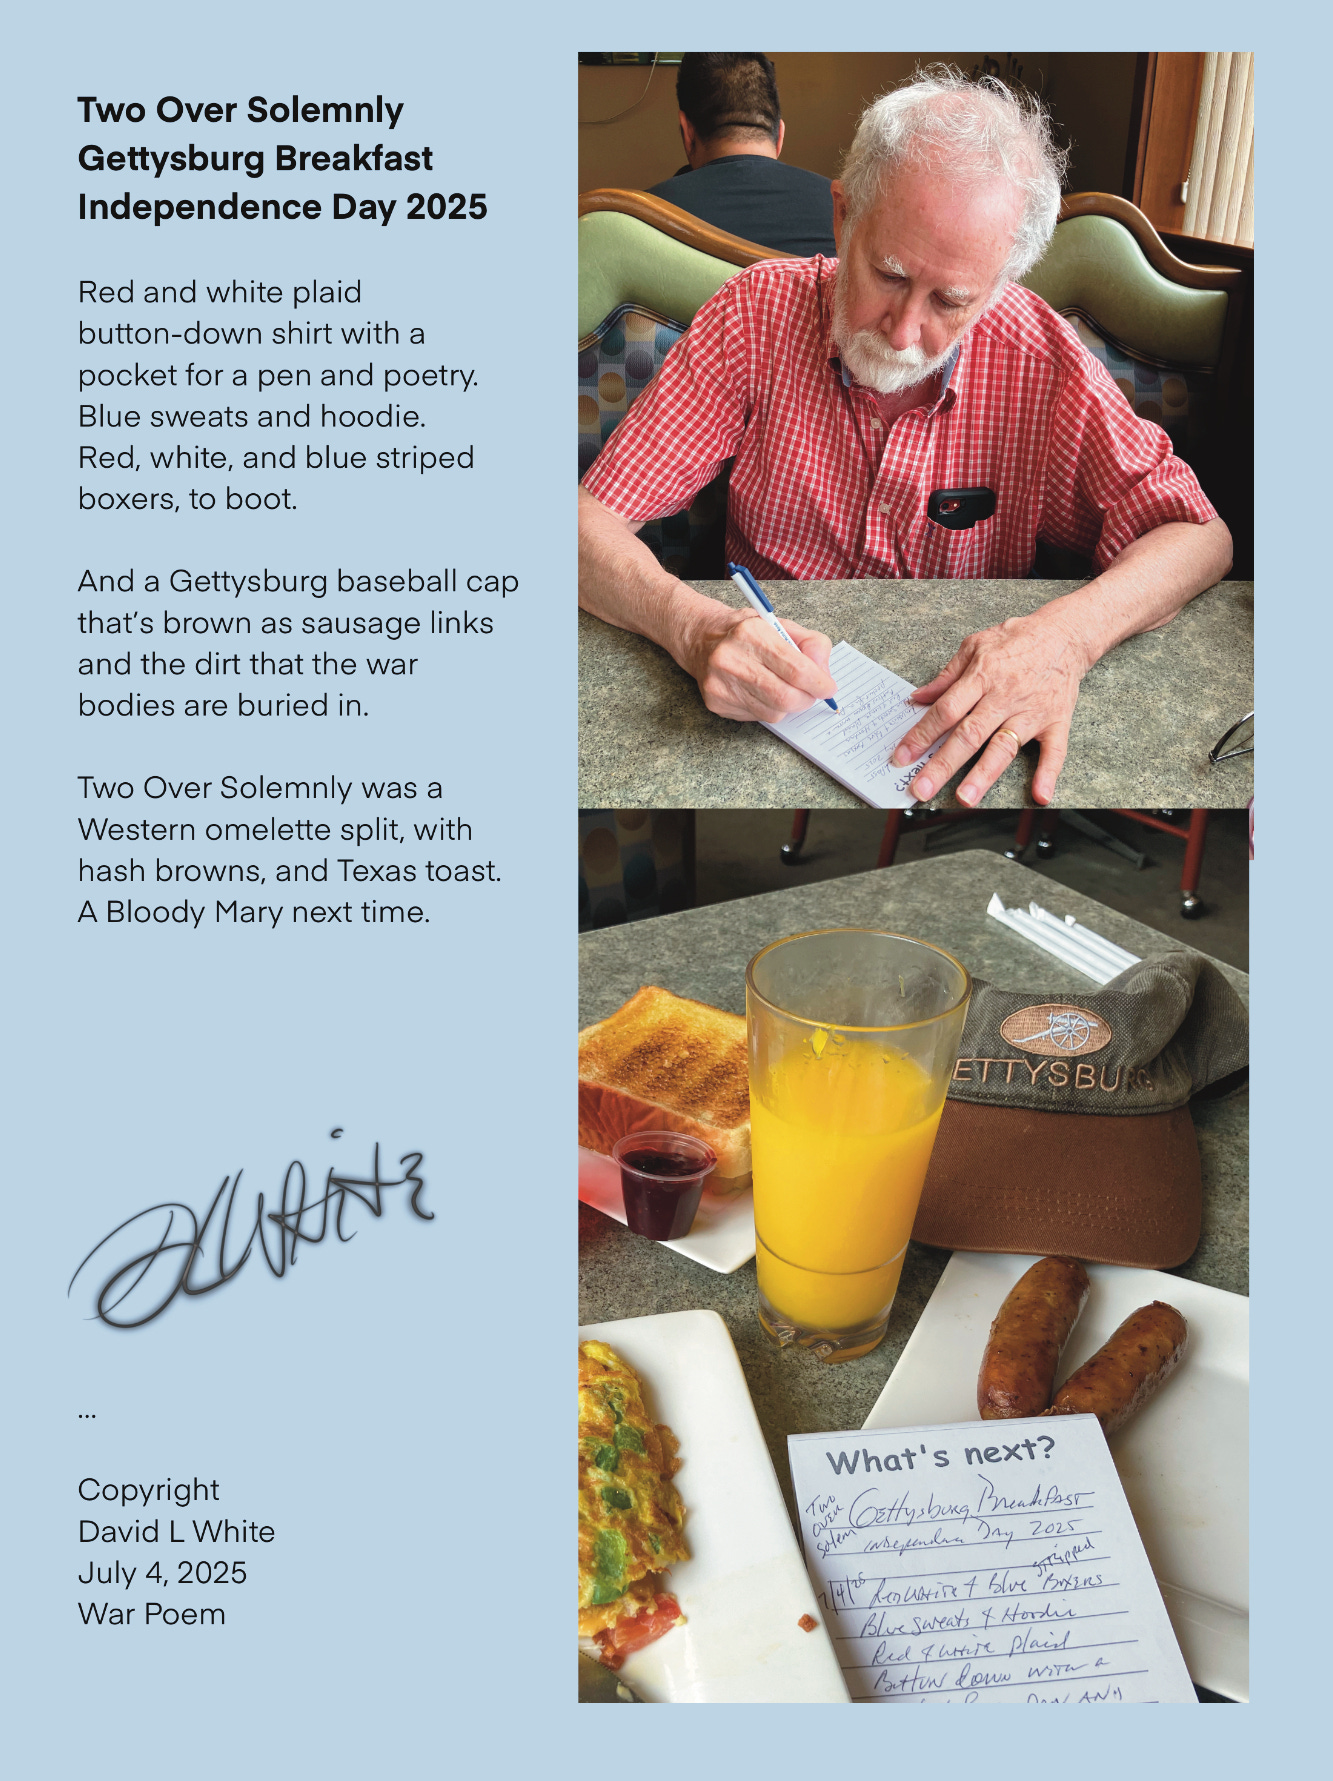 Two Over Solemnly
Gettysburg Breakfast
Independence Day 2025
Red and white plaid
button-down shirt with a
pocket for a pen and poetry.
Blue sweats and hoodie.
Red, white, and blue striped
boxers, to boot.
And a Gettysburg baseball cap
that’s brown as sausage links
and the dirt that the war
bodies are buried in.
Two Over Solemnly was a
Western omelette split, with
hash browns, and Texas toast.
A Bloody Mary next time.
DLWhite
...
Copyright
David L White
July 4, 2025
War Poem
ETTYSBURG
What's next?
Two
over
Solem
Gettysburg Breakfast
Independence Day 2025
stripped
7/4/25 Red White & Blue Boxers
Blue sweats & Hoodie
Red & white plaid
Button Down with a